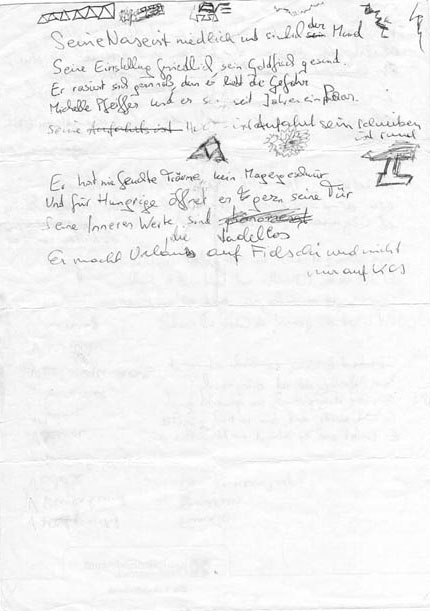 Seine Nase ist niedlich und sinnlich der Mund
Seine Einstellung friedlich, sein Goldfisch gesund.
Er rasiert sich gern naß, denn er liebt die Gefahr
Michelle Pfeiffer und er sein seit Jahren ein Paar.
Seine ist sein schreiben
ist rund
Er hat nie feuchte Träume, kein Magengeschwür
Und für Hungrige öffnet er gern seine Tür
Seine Inneren Werte sind
die tadellos
Er macht Urlaub auf Fidschi und nicht
nur auf